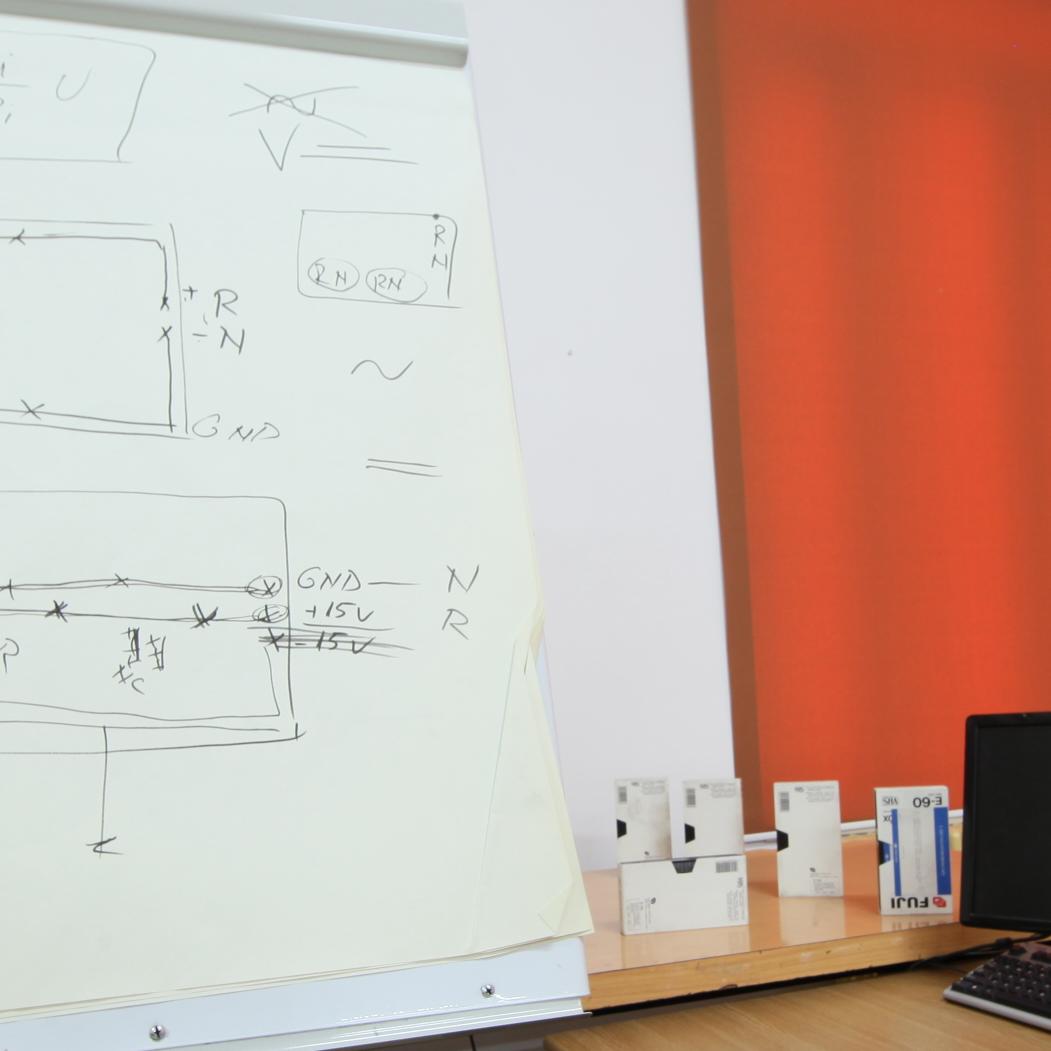 i U
V
R
N
RN RN
+ R
- N
GND
GND — N
+15V R
-15V
C
VHS
E-60
FUJI